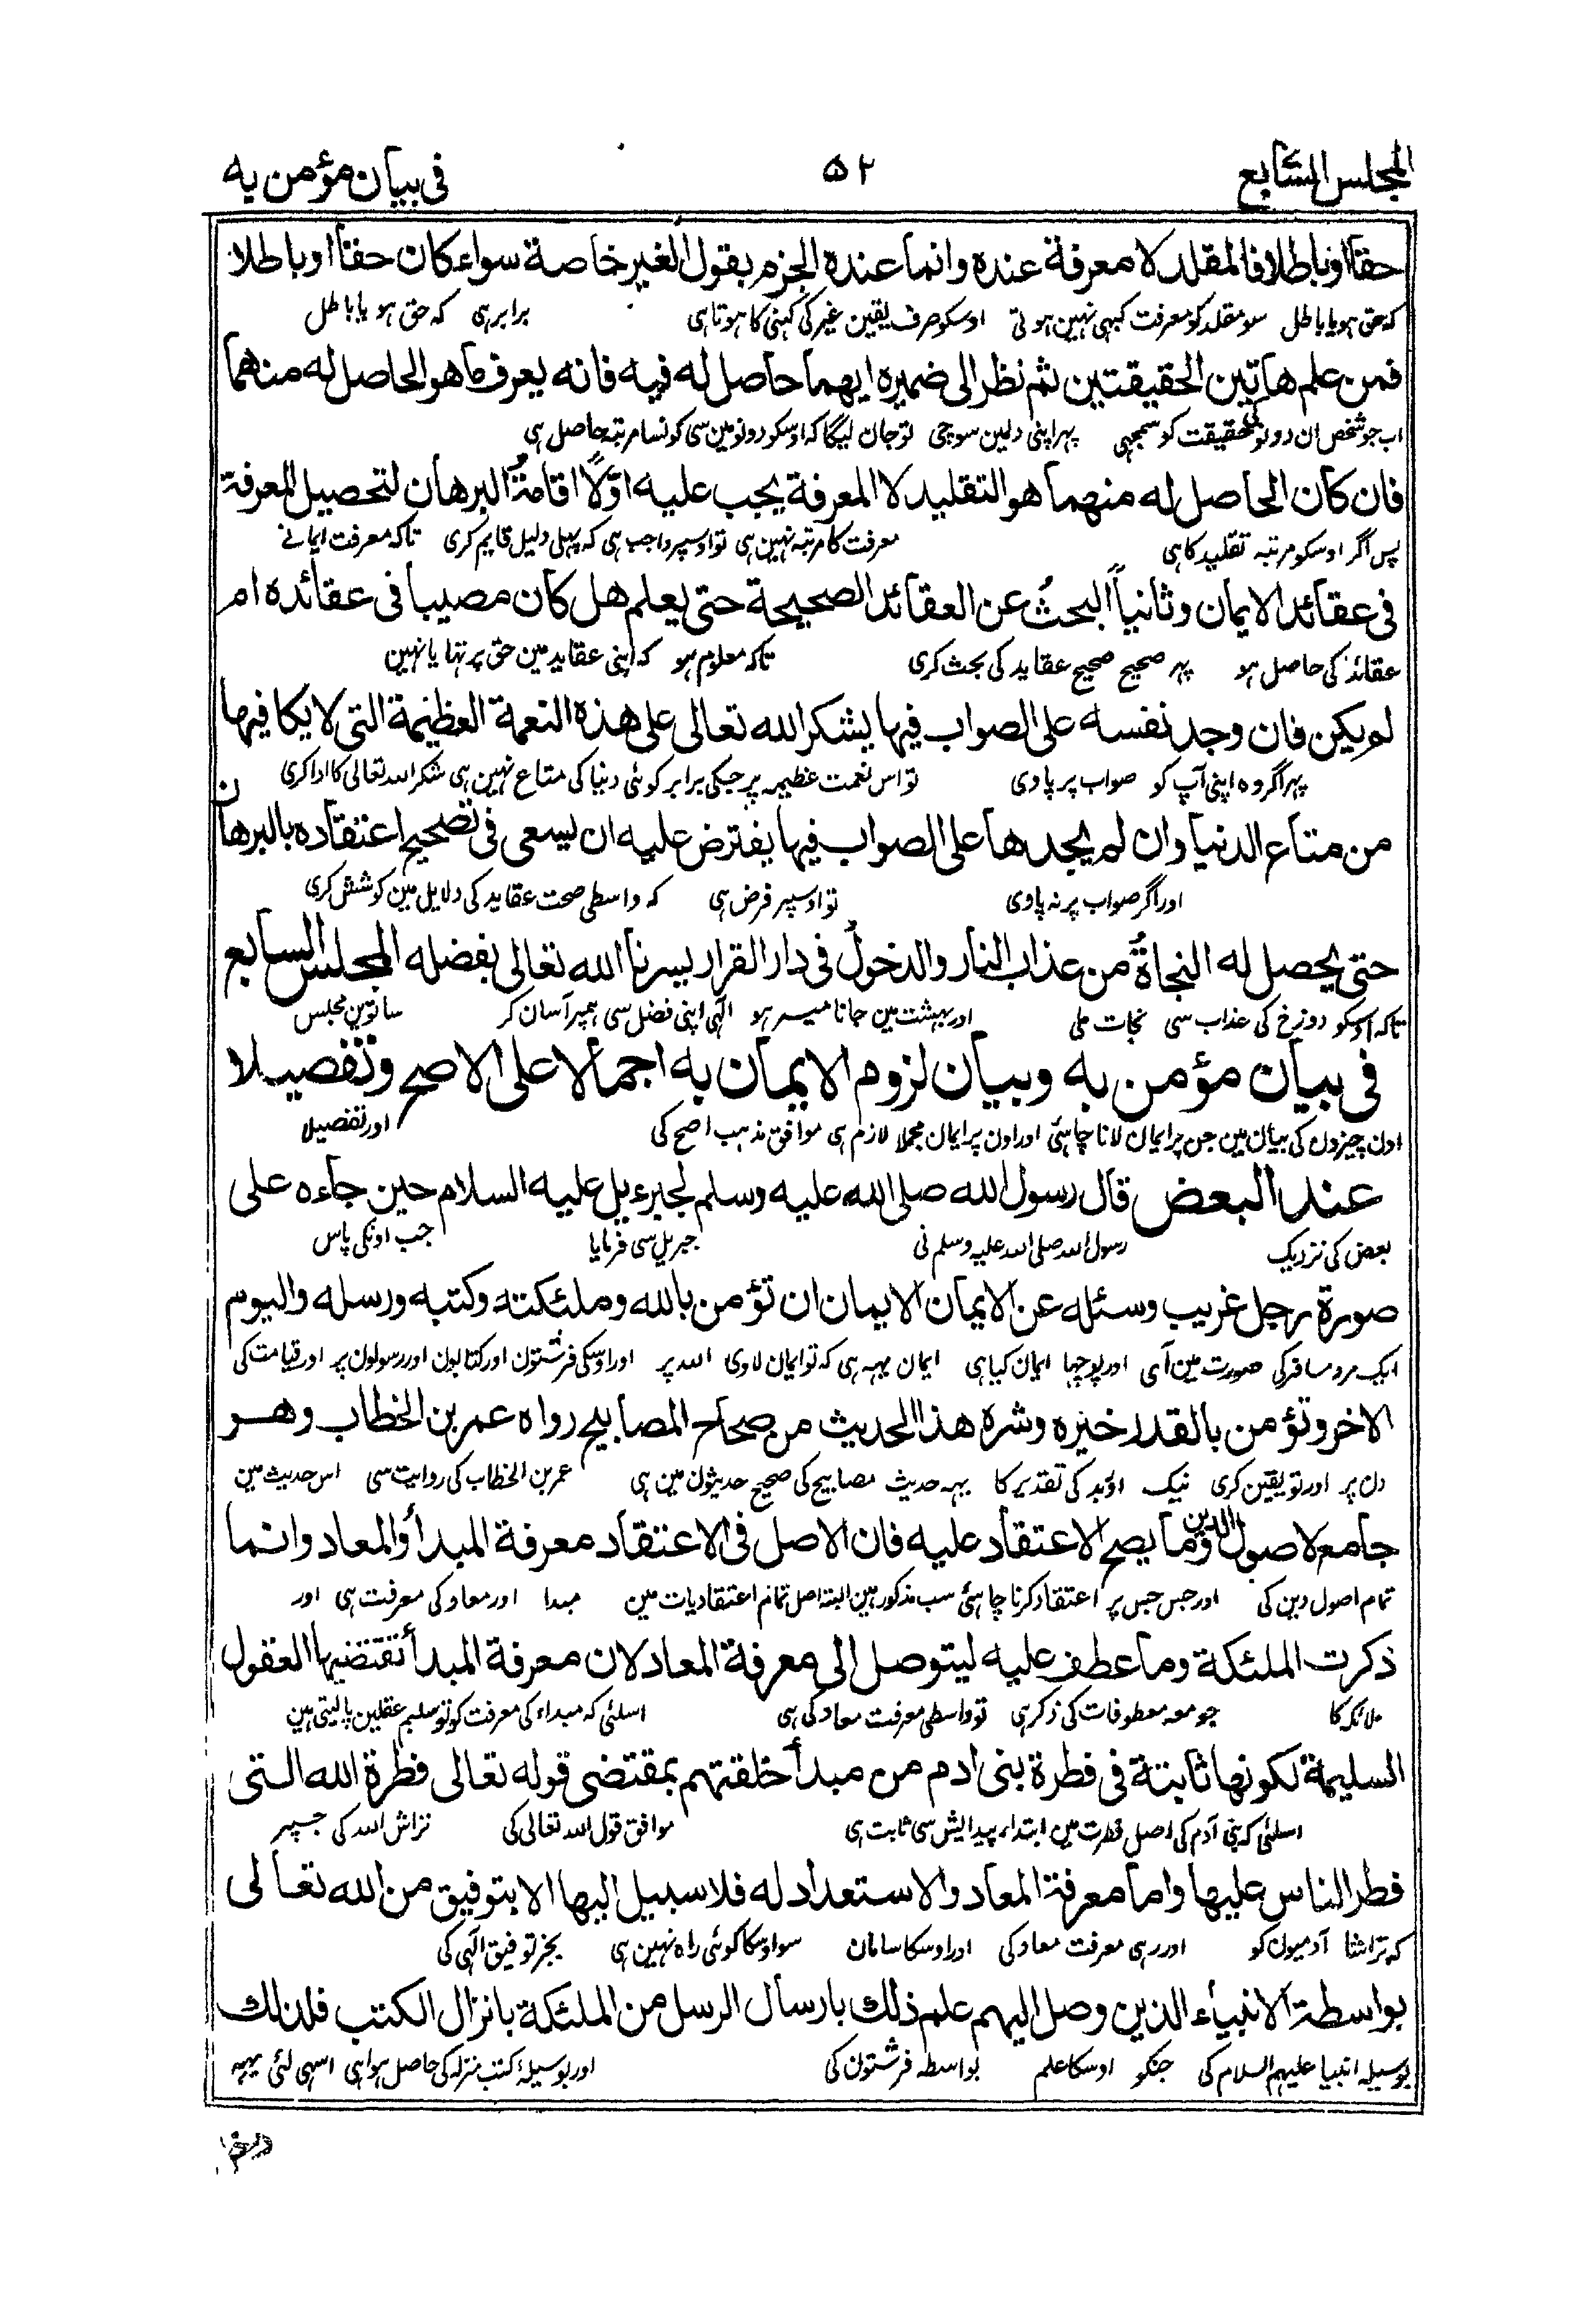 المجلس السابع ٥٢ فى بيان مؤمن به
حقا او باطلا فالمقلد لا معرفة عنده وانما عنده الجزم بقول الغير خاصة سواء كان حقا او باطلا
کہ حق ہو یا باطل سو مقلد کو معرفت کبہی نہین ہوتی اوسکو صرف یقین غیر کی کہنی کا ہوتا ہی برابر ہی کہ حق ہو یا باطل
فمن علم هاتين الحقيقتين ثم نظر الى ضميره ايهما حاصل له فيه فانه يعرف ما هو الحاصل له منهما
اب جو شخص ان دونو کی حقیقت کو سمجہی پہر اپنی دلمین سوچی تو جان لیگا کہ اوسکو دونو مین سی کونسا مرتبہ حاصل ہی
فان كان الحاصل له منهما هو التقليد لا المعرفة يجب عليه اوّلًا اقامةُ البرهان لتحصيل المعرفة
پس اگر اوسکو مرتبہ تقلید کا ہی معرفت کا مرتبہ نہین ہی تو اوسپر واجب ہی کہ پہلی دلیل قایم کری تاکہ معرفت ایمانے
فى عقائد الايمان وثانياً البحثُ عن العقائد الصحيحة حتى يعلم هل كان مصيبا فى عقائده ام
عقائد کی حاصل ہو پہر صحیح صحیح عقاید کی بحث کری تاکہ معلوم ہو کہ اپنی عقاید مین حق پر تہا یا نہین
لم يكن فان وجد نفسه على الصواب فيها يشكر الله تعالى على هذه النعمة العظيمة التى لا يكافيها
پہر اگر وہ اپنی آپ کو صواب پر پاوی تو اس نعمت عظیمہ پر جسکی برابر کوئی دنیا کی متاع نہین ہی شکر اللہ تعالی کا ادا کری
من متاع الدنيا وان لم يجدها على الصواب فيها يفترض عليه ان يسعى فى تصحيح اعتقاده بالبرهان
اور اگر صواب پر نہ پاوی تو اوسپر فرض ہی کہ واسطی صحت عقاید کی دلایل مین کوشش کری
حتى يحصل له النجاةُ من عذاب النار والدخولُ فى دار القرار يسرنا الله تعالى بفضله المجلس السابع
تاکہ اوسکو دوزخ کی عذاب سی نجات ملی اور بہشت مین جانا میسر ہو الٰہی اپنی فضل سی ہمپر آسان کر ساتوین مجلس
فى بيان مؤمن به وبيان لزوم الايمان به اجمالا على الاصح وتفصيلا
اون چیزون کی بیان مین جن پر ایمان لانا چاہئی اور اون پر ایمان مجملا لازم ہی موافق مذہب اصح کی اور تفصیلا
عند البعض قال رسول الله صلى الله عليه وسلم لجبرءيل عليه السلام حين جاءه على
بعض کی نزدیک رسول اللہ صلی اللہ علیہ وسلم نی جبریل سی فرمایا جب اونکی پاس
صورة رجل غريب وسئله عن الايمان الايمان ان تؤمن بالله وملئكته وكتبه ورسله واليوم
ایک مرد مسافر کی صورت مین آی اور پوچہا ایمان کیا ہی ایمان یہہ ہی کہ تو ایمان لاوی اللہ پر اور اوسکی فرشتون اور کتابون اور رسولون پر اور قیامت کی
الاخر وتؤمن بالقدر خيره وشره هذا الحديث من صحاح المصابيح رواه عمر بن الخطاب وهو
دن پر اور تو یقین کری نیک اور بد کی تقدیر کا یہہ حدیث مصابیح کی صحیح حدیثون مین ہی عمر بن الخطاب کی روایت سی اس حدیث مین
جامع لاصول الدين وما يصح الاعتقاد عليه فان الاصل فى الاعتقاد معرفة المبدأ والمعاد وانما
تمام اصول دین کی اور جس جس پر اعتقاد کرنا چاہئی سب مذکور ہین البتہ اصل تمام اعتقادیات مین مبدا اور معاد کی معرفت ہی اور
ذكرت الملئكة وما عطف عليه ليتوصل الى معرفة المعاد لان معرفة المبدأ تقتضيها العقول
ملائکہ کا جو معہ معطوفات کی ذکر ہی تو واسطی معرفت معاد کی ہی اسلئی کہ مبداء کی معرفت کو تو سلیم عقلین پا لیتی ہین
السليمة لكونها ثابتة فى فطرة بنى ادم من مبدأ خلقتهم بمقتضى قوله تعالى فطرة الله التى
اسلئی کہ بنی آدم کی اصل فطرت مین ابتداء پیدایش سی ثابت ہی موافق قول اللہ تعالی کی تراش اللہ کی جسپر
فطر الناس عليها واما معرفة المعاد والاستعداد له فلا سبيل اليها الا بتوفيق من الله تعالى
کہ تراشا آدمیون کو اور رہی معرفت معاد کی اور اوسکا سامان سو اوسکا کوئی راہ نہین ہی بجز توفیق الٰہی کی
بواسطة الانبياء الذين وصل اليهم علم ذلك بارسال الرسل من الملئكة بانزال الكتب فلذلك
بوسیلہ انبیا علیہم السلام کی جنکو اوسکا علم بواسطہ فرشتون کی اور بوسیلہ کتب منزلہ کی حاصل ہوا ہی اسہی لئی یہہ